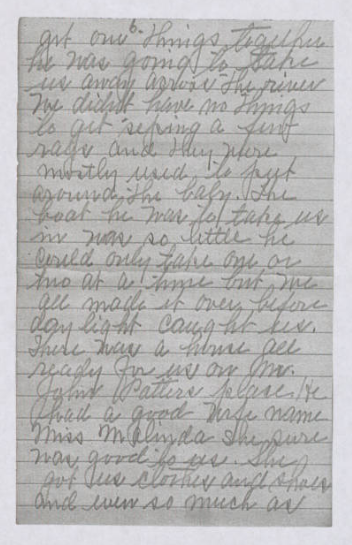 6.
get our things together
he was going to take
us away across the river
we didn't have no things
to get seping a few
rags and they were
mostly used to put
around the baby. The
boat he was to take us
in was so little he
could only take one or
two at a time but we
all made it over before
daylight caught us.
There was a house all
ready for us on Mr.
John Watters place. He
had a good wife name
Miss Malinda she sure
was good to us. She
got us clothes and shoes
and even so much as